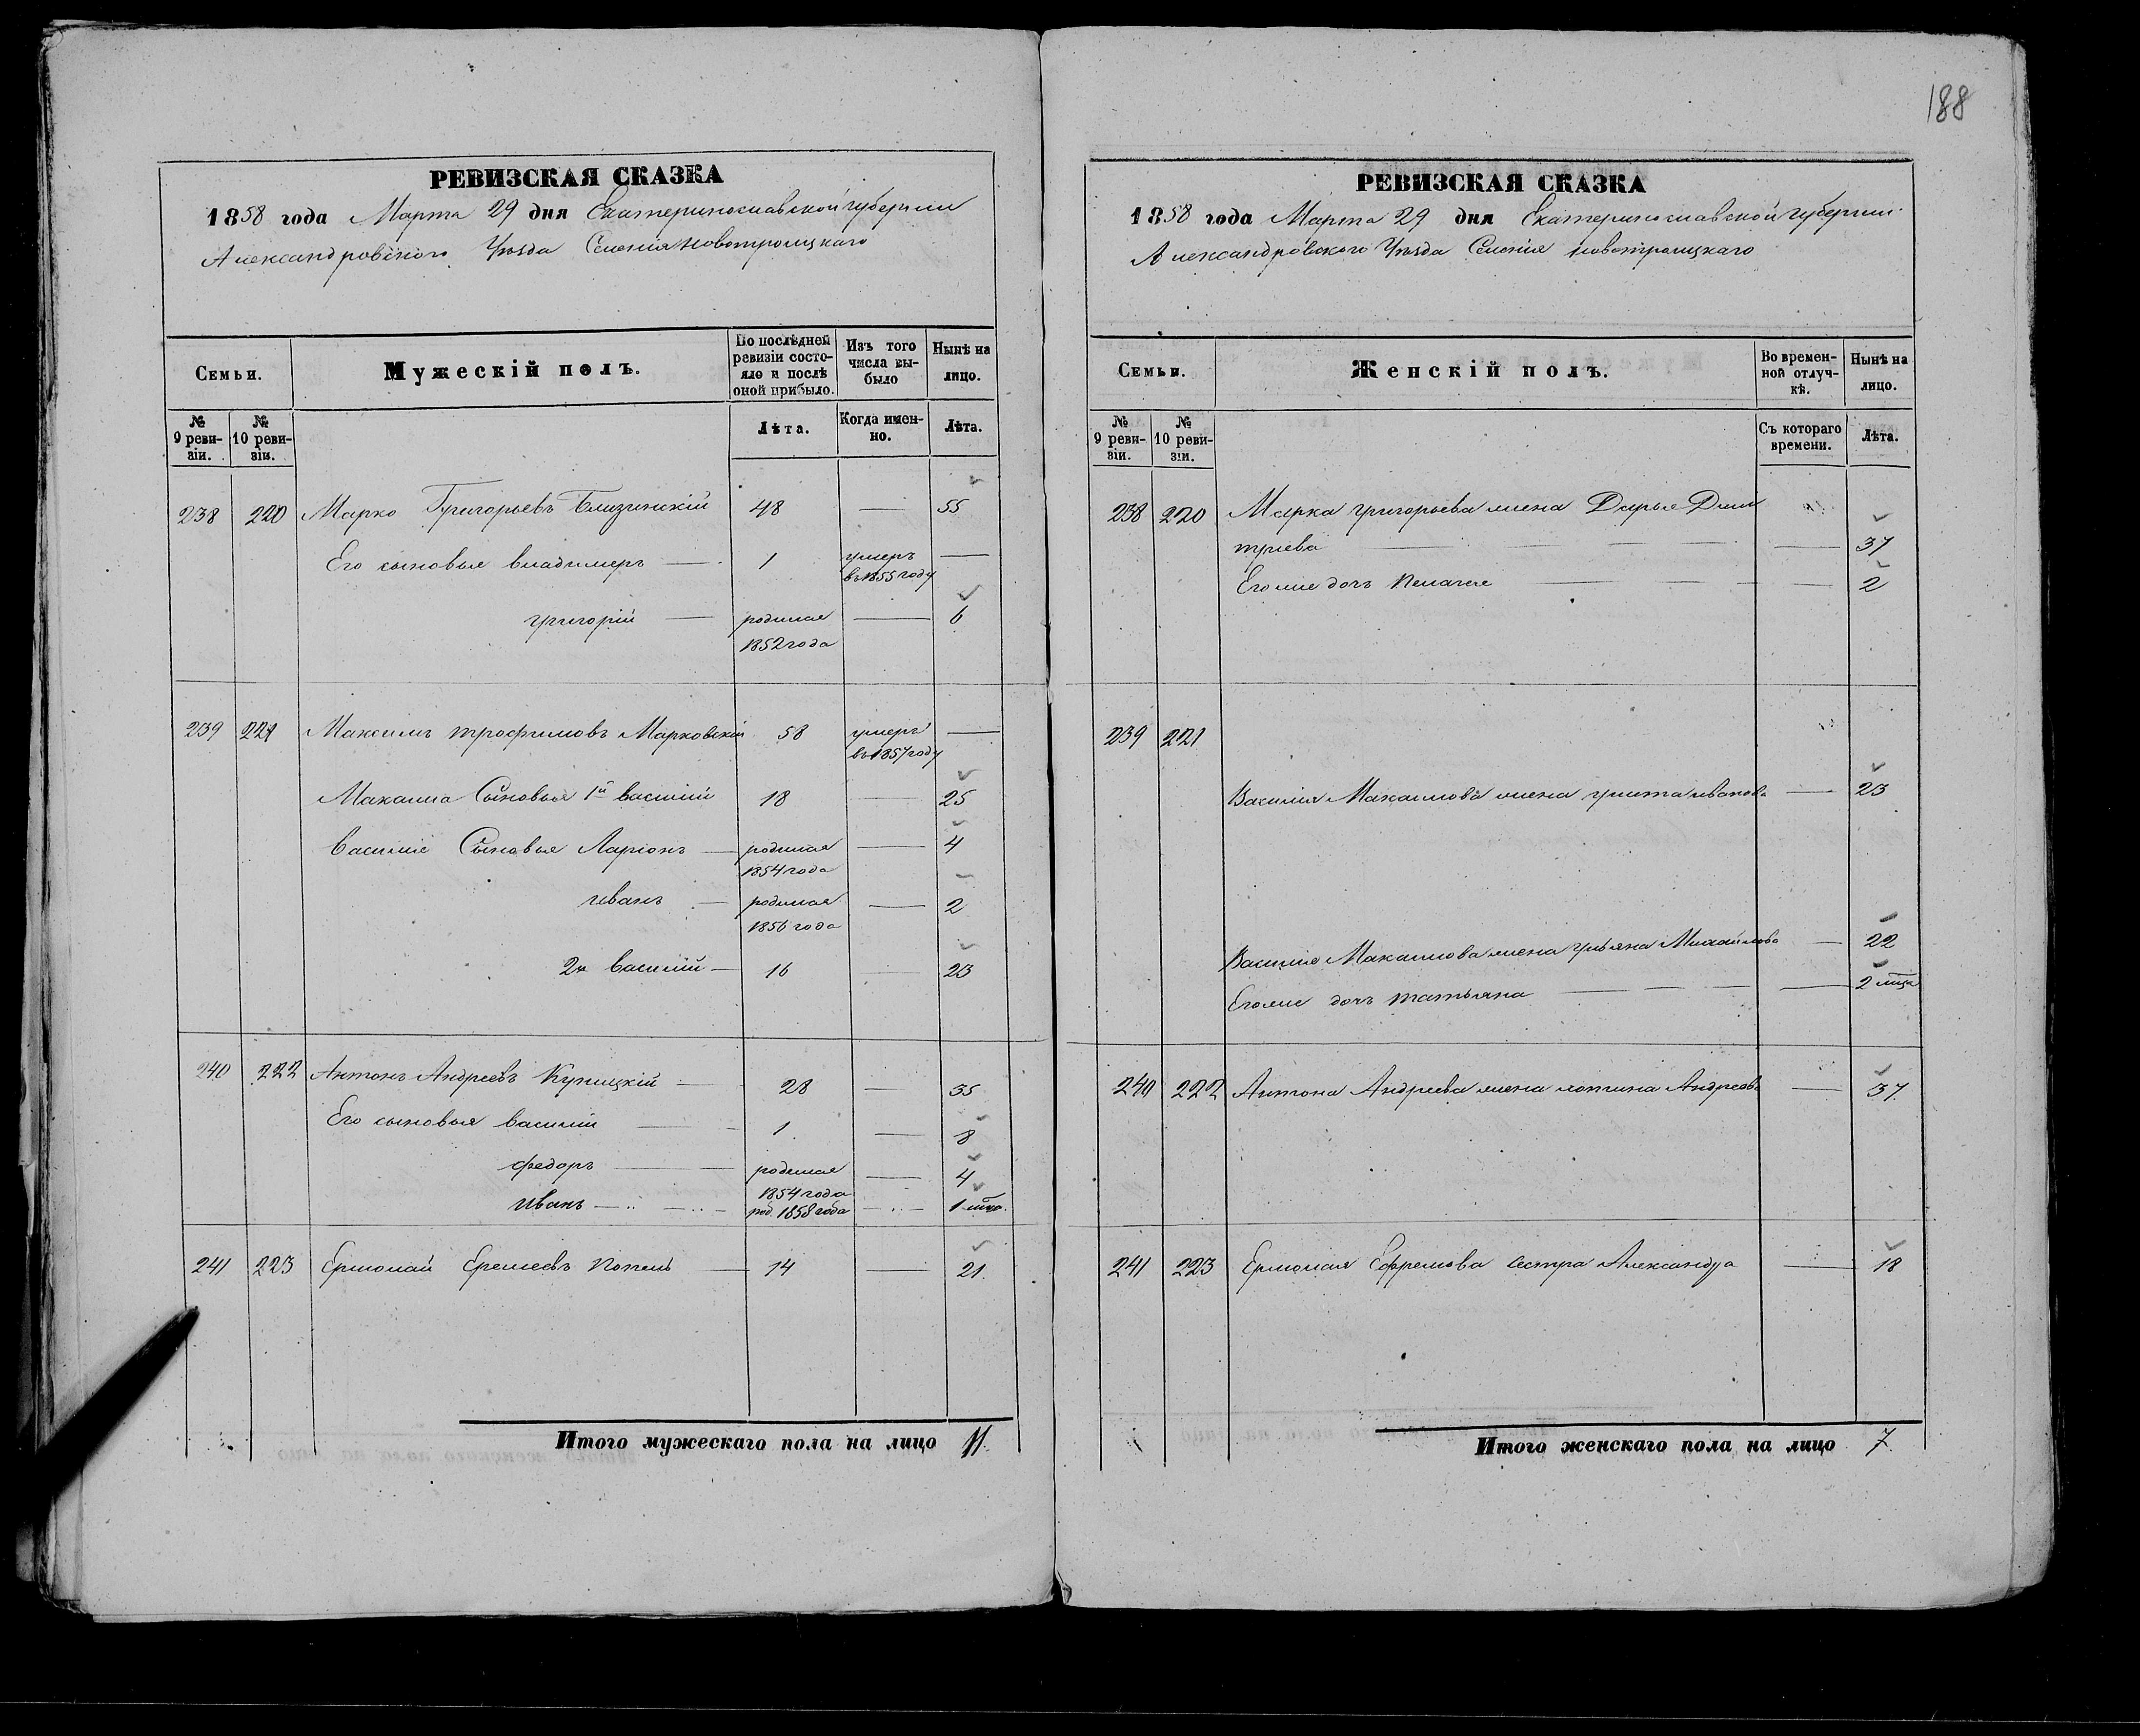 188
РЕВИЗСКАЯ СКАЗКА
1858 года Марта 29 дня Екатеринославской губернии
Александровского Уѣзда Селенія Новотроицкаго
Семьи.
Мужескій полъ.
По послѣдней ревизіи состояло и послѣ оной прибыло.
Изъ того числа выбыло
Нынѣ на лицо.
№ 9 ревизіи.
№ 10 ревизіи.
Лѣта.
Когда именно.
Лѣта.
238 220 Марко Григорьевъ Близинскій 48 — 55
Его сыновья владимеръ — 1 умеръ въ 1855 году —
григорій — родился 1852 года — 6
239 221 Максимъ трофимовъ Марковскій 58 умеръ въ 1857 году —
Максима Сыновья 1й василій 18 — 25
Василія Сыновья Ларіонъ — родился 1854 года — 4
иванъ — родился 1856 года — 2
2й василій — 16 — 23
240 222 Антонъ Андреевъ Купицкій — 28 — 35
Его сыновья василій — 1 — 8
федоръ — родился 1854 года — 4
иванъ — род. 1858 года — 1 мца.
241 223 Ермолай Еремеевъ — 14 — 21.
Итого мужескаго пола на лицо 11.
РЕВИЗСКАЯ СКАЗКА
1858 года Марта 29 дня Екатеринославской губернии
Александровского Уѣзда Селенія новотроицкаго
Семьи.
Женскій полъ.
Во временной отлучкѣ.
Нынѣ на лицо.
№ 9 ревизіи.
№ 10 ревизіи.
Съ котораго времени.
Лѣта.
238 220 Марка григорьева жена Дарья Дми
тріева — — 37
Его же дочь Пелагея — — 2
239 221
Василия Максимова жена улита иванова — 23
Василия Максимова жена ульяна Михайлова — 22
Его же дочь татьяна — — 2 мца
240 222 Антона Андреева жена Андреева — 37.
241 223 Ермолая Ефремова сестра Александра — 18
Итого женскаго пола на лицо 7.